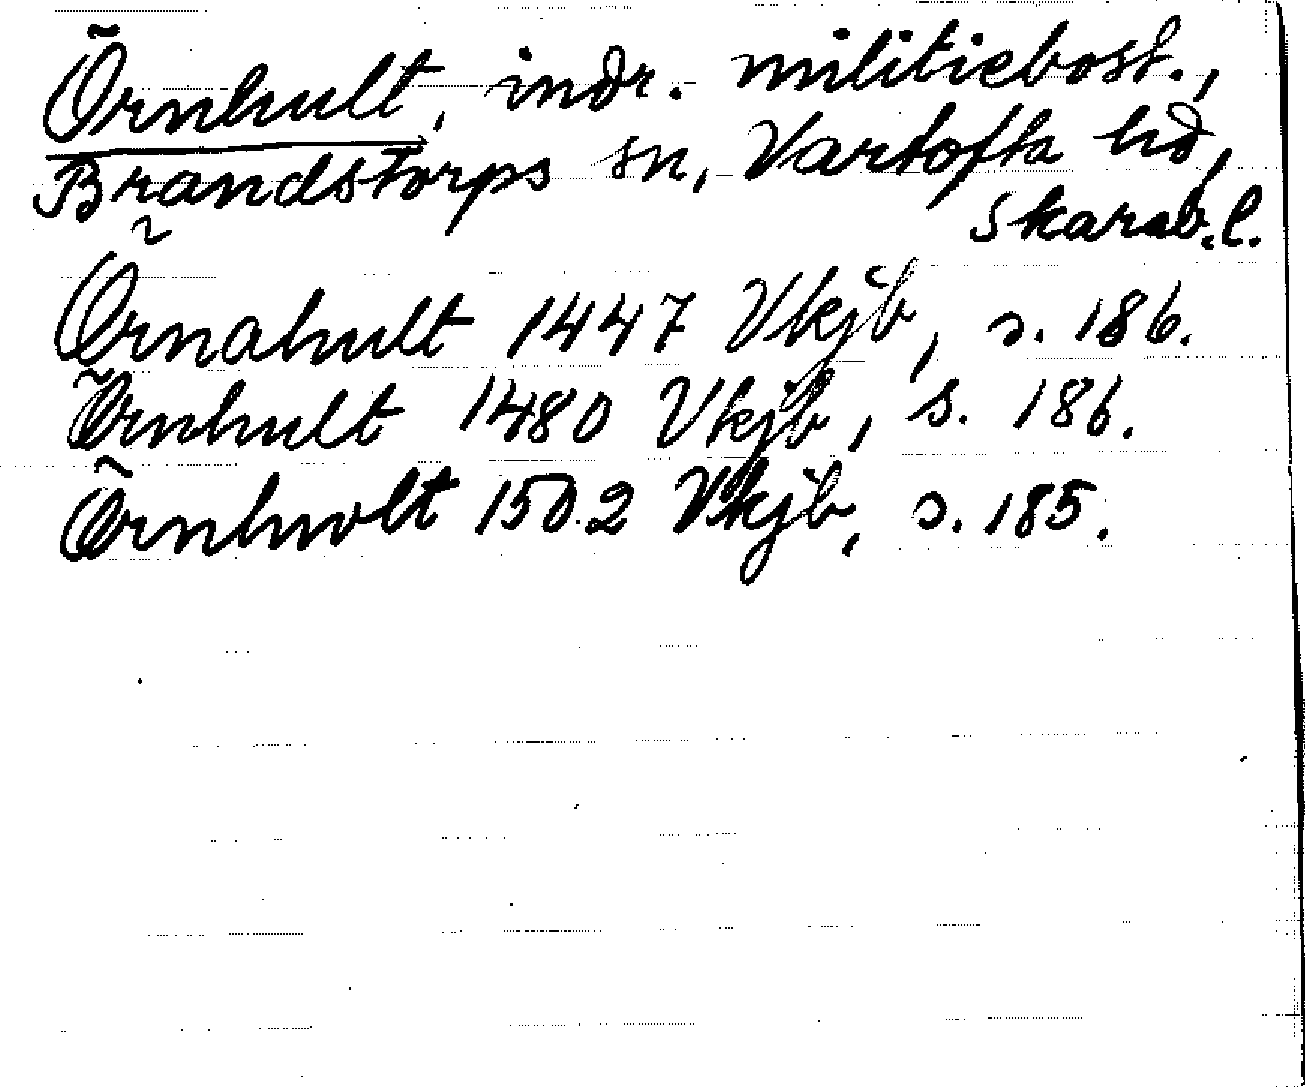 Örnhult, indr. militiebost.,
Brandstorps sn, Vartofta hd,
Skarab.l.
Örnahult 1447 Vkjb, s. 186.
Örnhult 1480 Vkjb, s. 186.
Örnhwlt 1502 Vkjb, s. 185.